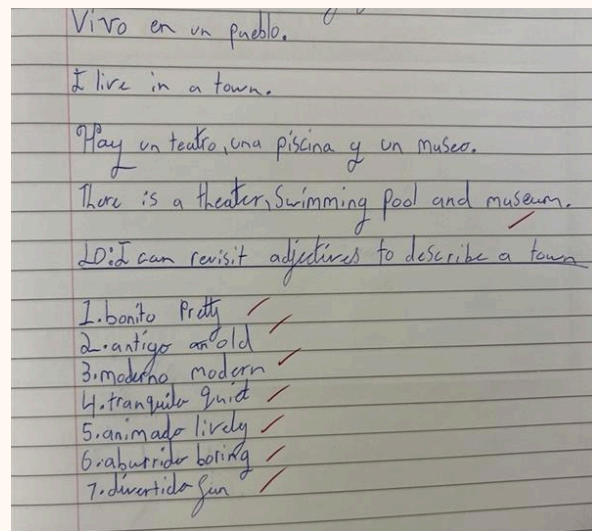 Vivo en un pueblo.
I live in a town.
Hay un teatro, una piscina y un museo.
There is a theater, Swimming pool and museum.
LO: I can revisit adjectives to describe a town
1. bonito Pretty
2. antigo old
3. moderno modern
4. tranquilo quiet
5. animado lively
6. aburrido boring
7. divertido fun